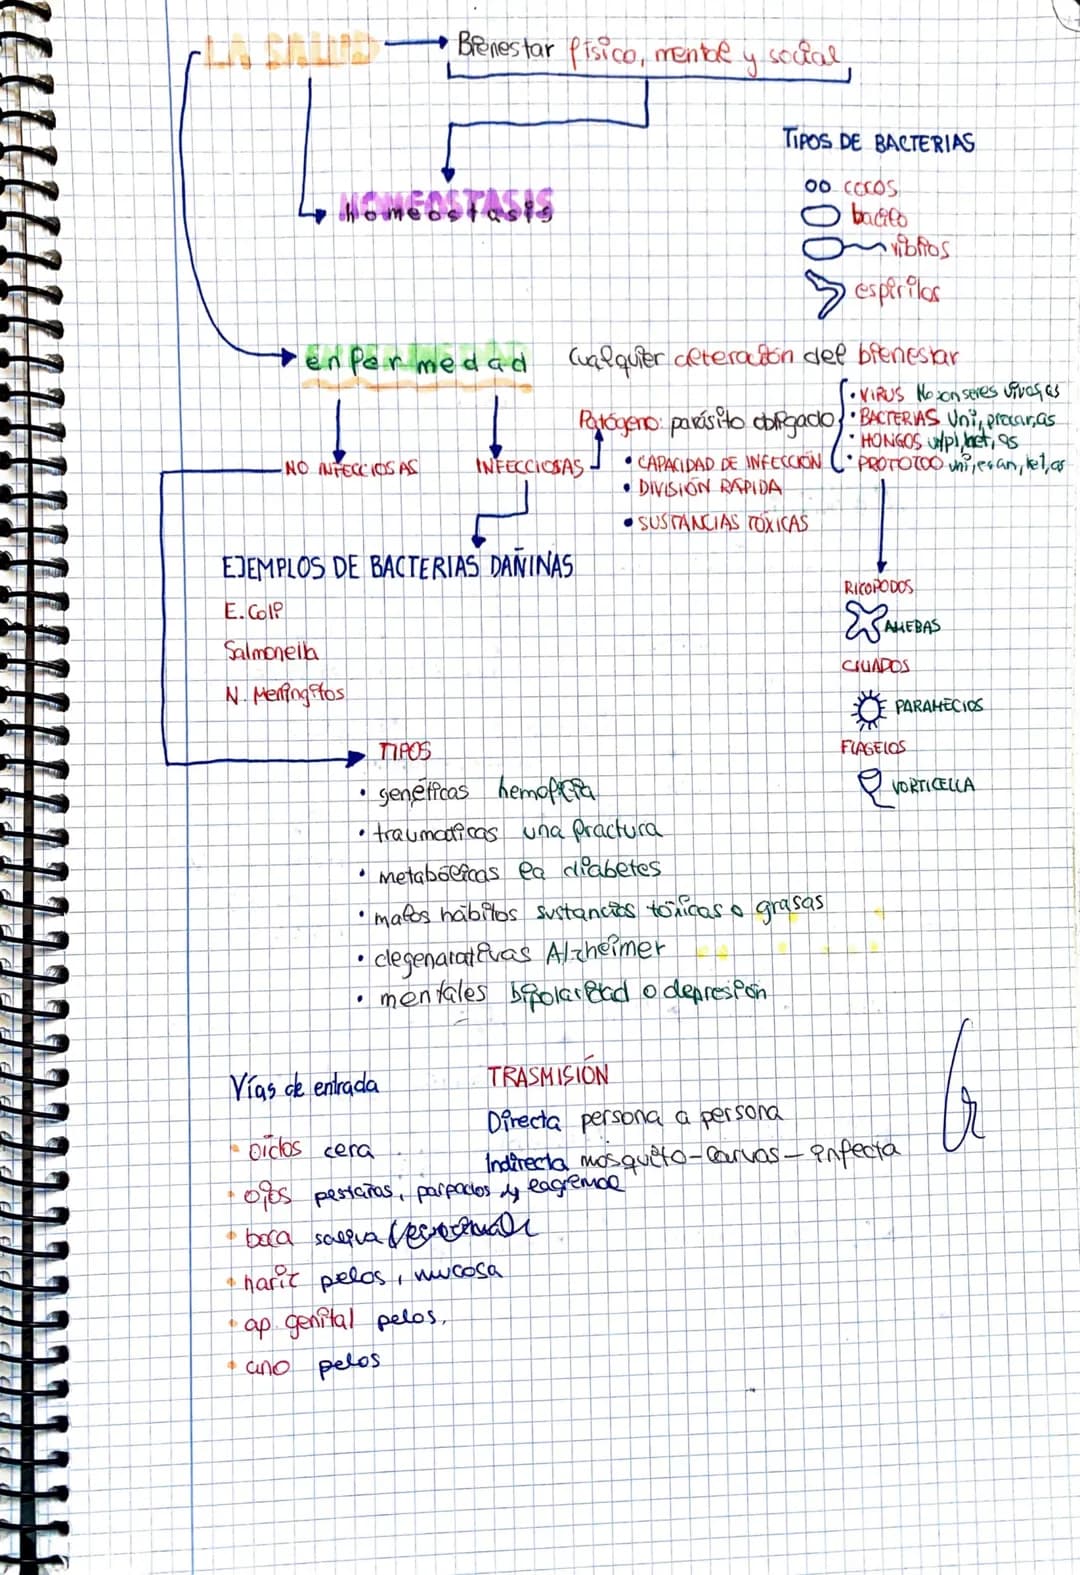 LA SALUD → Bienestar físico, mental y social
TIPOS DE BACTERIAS
cocos
bacilo
vibrios
espirilos
homeostasis
enfermedad cualquier alteración del bienestar
NO INFECCIOSAS
INFECCIOSAS
Patógeno: parásito obligado
• CAPACIDAD DE INFECCIÓN
• DIVISIÓN RÁPIDA
• SUSTANCIAS TÓXICAS
• VIRUS No son seres vivos, as
• BACTERIAS Uni, procar, as
• HONGOS u/pl, het, as
• PROTOZOO uni,
RICOPODOS
AMEBAS
CILIADOS
PARAMECIOS
FLAGELOS
VORTICELLA
EJEMPLOS DE BACTERIAS DAÑINAS
E. Coli
Salmonella
N. Meningitos
TIPOS
• genéticas hemofilia
• traumaticas una fractura
• metabólicas la diabetes
• malos hábitos sustancias tóxicas o grasas
• degenarativas Alzheimer
• mentales bipolaridad o depresión
Vías de entrada
• oidos cera
• ojos pestañas, parpados y lagrimal
• boca saliva
• nariz pelos, mucosa
• ap. genital pelos,
• ano pelos
TRASMISIÓN
Directa persona a persona
Indirecta mosquito - larvas - infecta